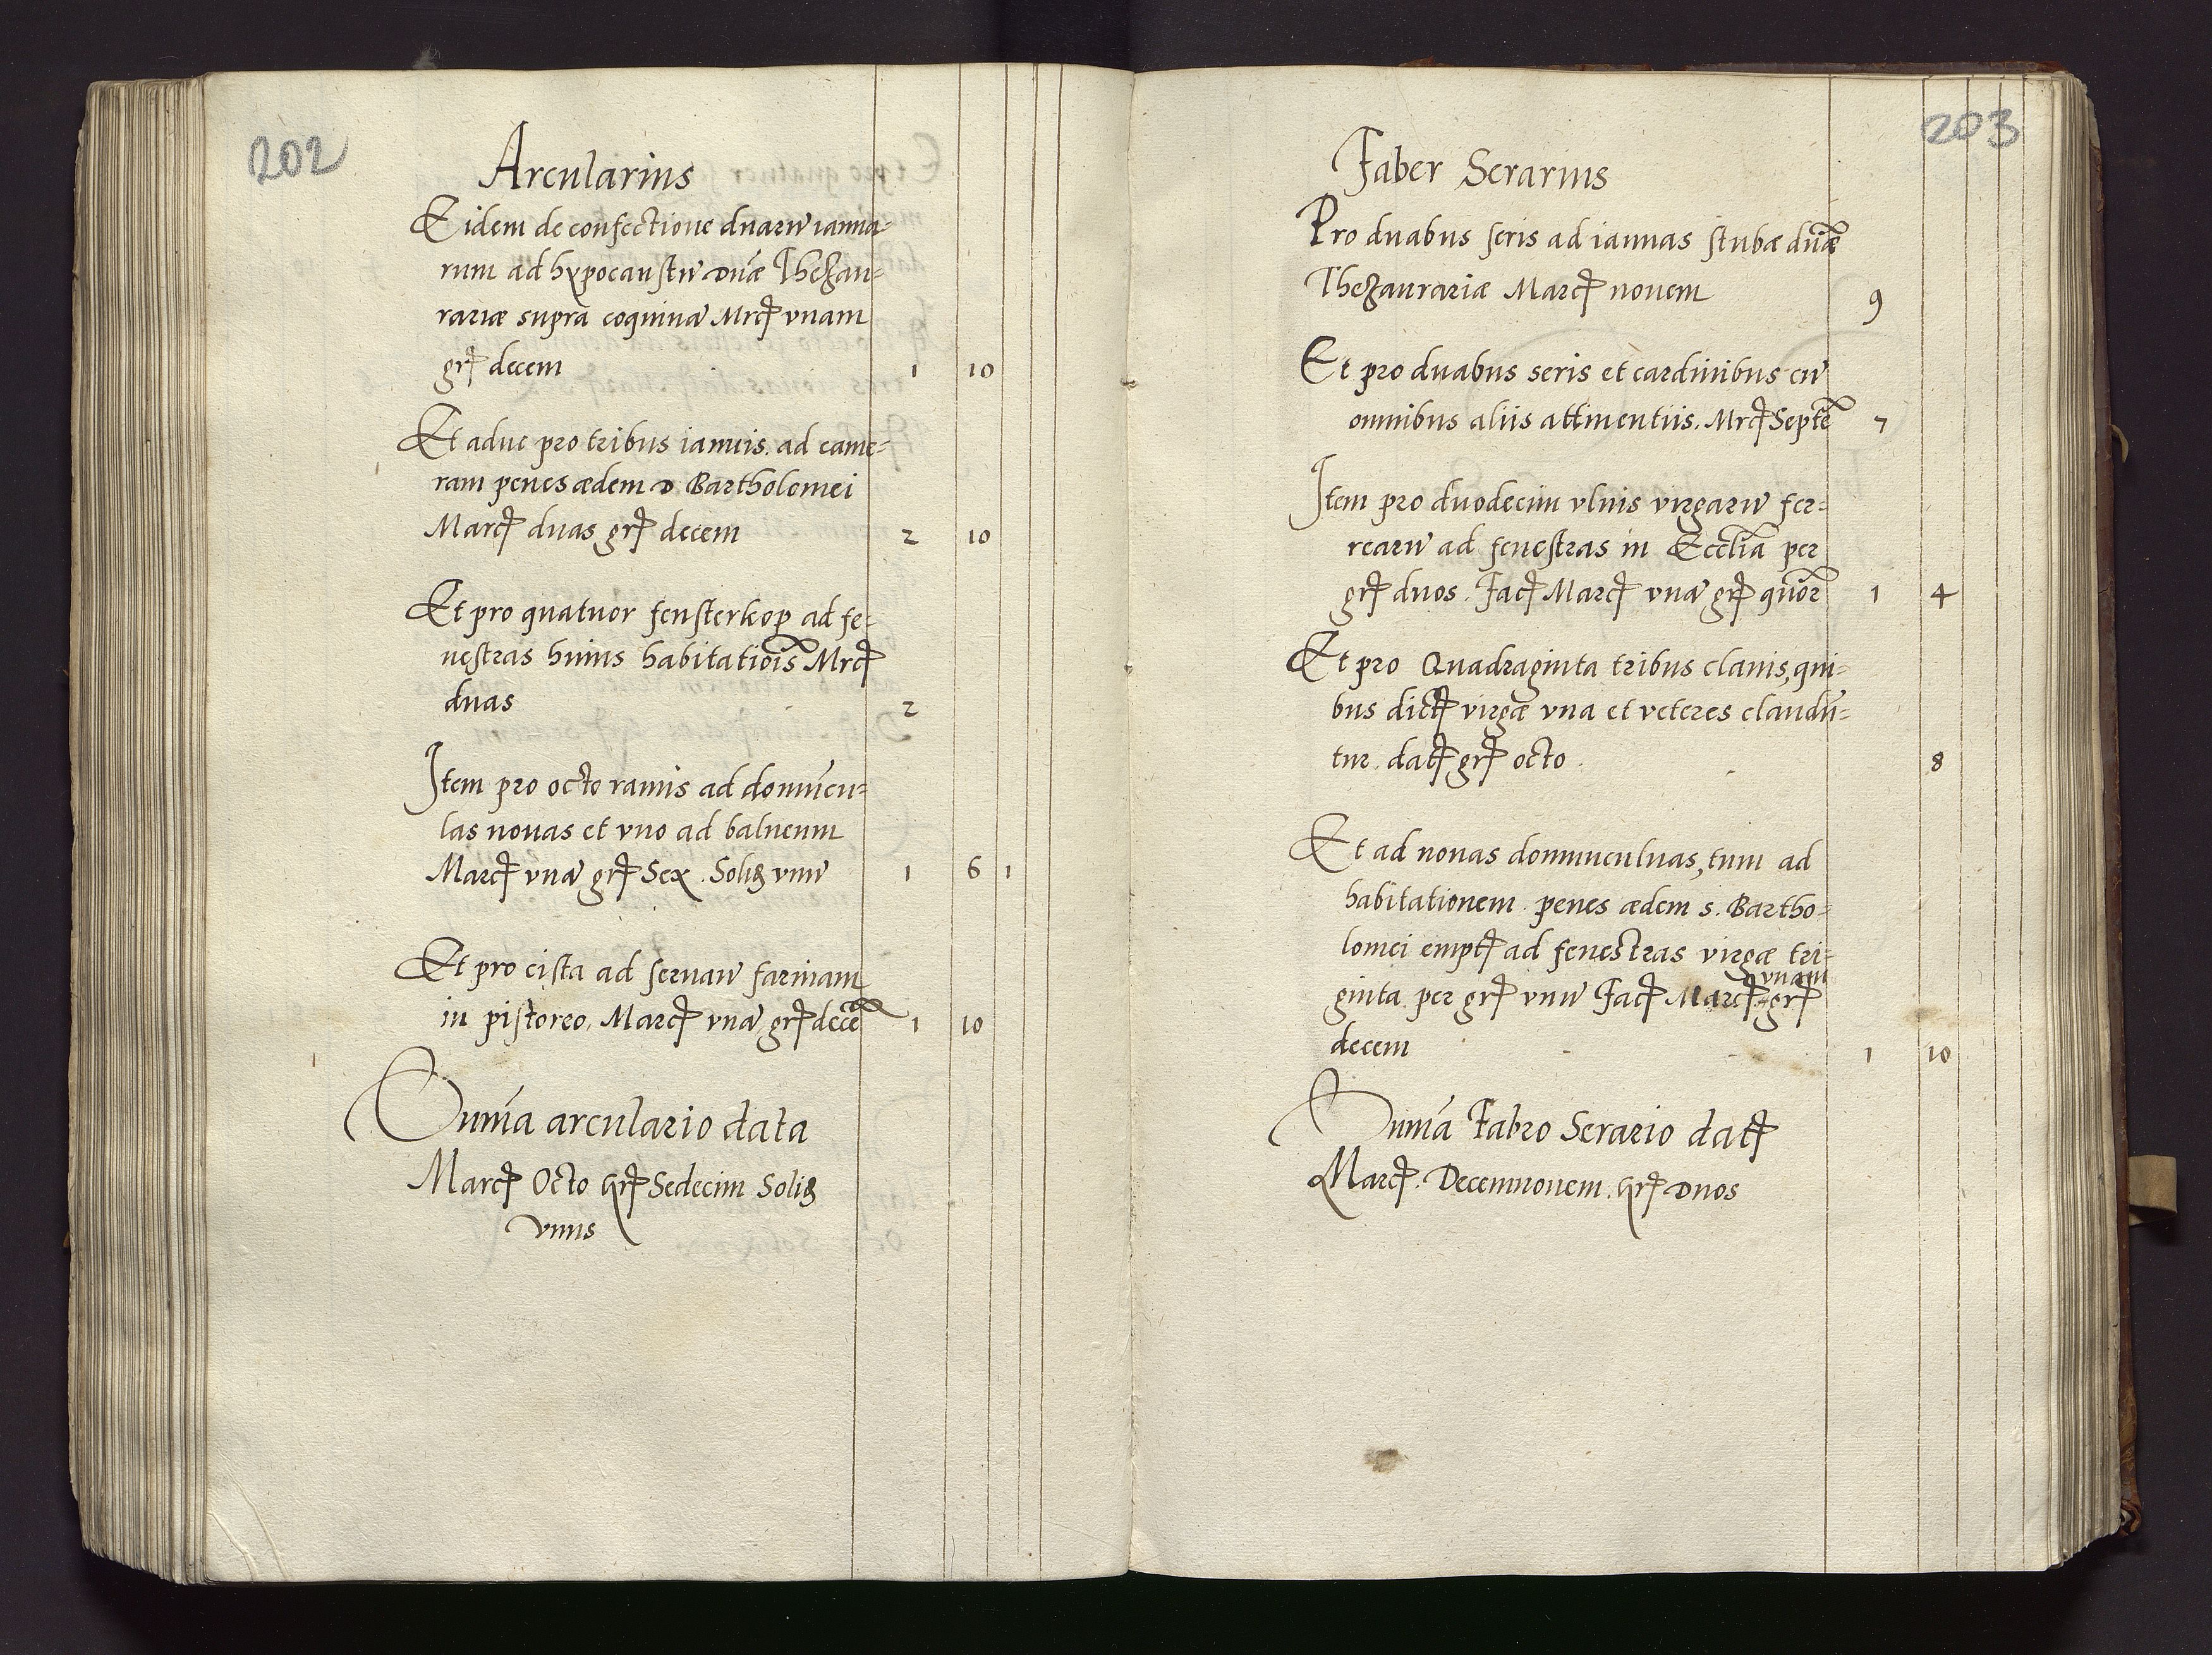 202
Arcularius
Eidem de confectione duarū ianua-
rum ad hypocaustū dn̄æ Thezau-
rariæ supra coquinā Mrc̨ vnam
gr̨ decem 1 10
Et aduc pro tribus ianuis. ad came-
ram penes ædem D Bartholomei
Marc̨ duas gr̨ decem 2 10
Et pro quatuor fensterkop ad fe-
nestras huius habitatiōis Mrc̨
duas 2
Item pro octo ramis ad domūcu-
las nouas et vno ad balneum
Marc̨ vnā gr̨ Sex. Solid vnū 1 6 1
Et pro cista ad seruanā farinam
in pistoreo. Marc̨ vnā gr̨ decē 1 10
Sum̄a arculario data
Marc̨ Octo gr̨ Sedecim Solid
vnus
203
Faber Serarius
Pro duabus seris ad ianuas stubæ dn̄æ
Thezaurariæ Marc̨ nouem 9
Et pro duabus seris et cardinibus cū
omnibus aliis attinentiis. Mrc̨ Septē 7
Item pro duodecim vlnis virgarū fer-
rearū ad fenestras in Eccl̄ia per
gr̨ duos. Fac̨ Marc̨ vnā gr̨ quōr 1 4
Et pro Quadraginta tribus clauis, qui-
bus dict̨ virgæ vna et veteres claudū-
tur. dat̨ gr̨ octo. 8
Et ad nouas domunculuas, tum ad
habitationem penes ædem s. Bartho-
lomei empt̨ ad fenestras virgæ tri-
ginta per gr̨ vnū Fac̨ Marc̨ vnam gr̨
decem 1 10
Sum̄a Fabro Serario dat̨
Marc̨. Decemnouem. gr̨ Duos